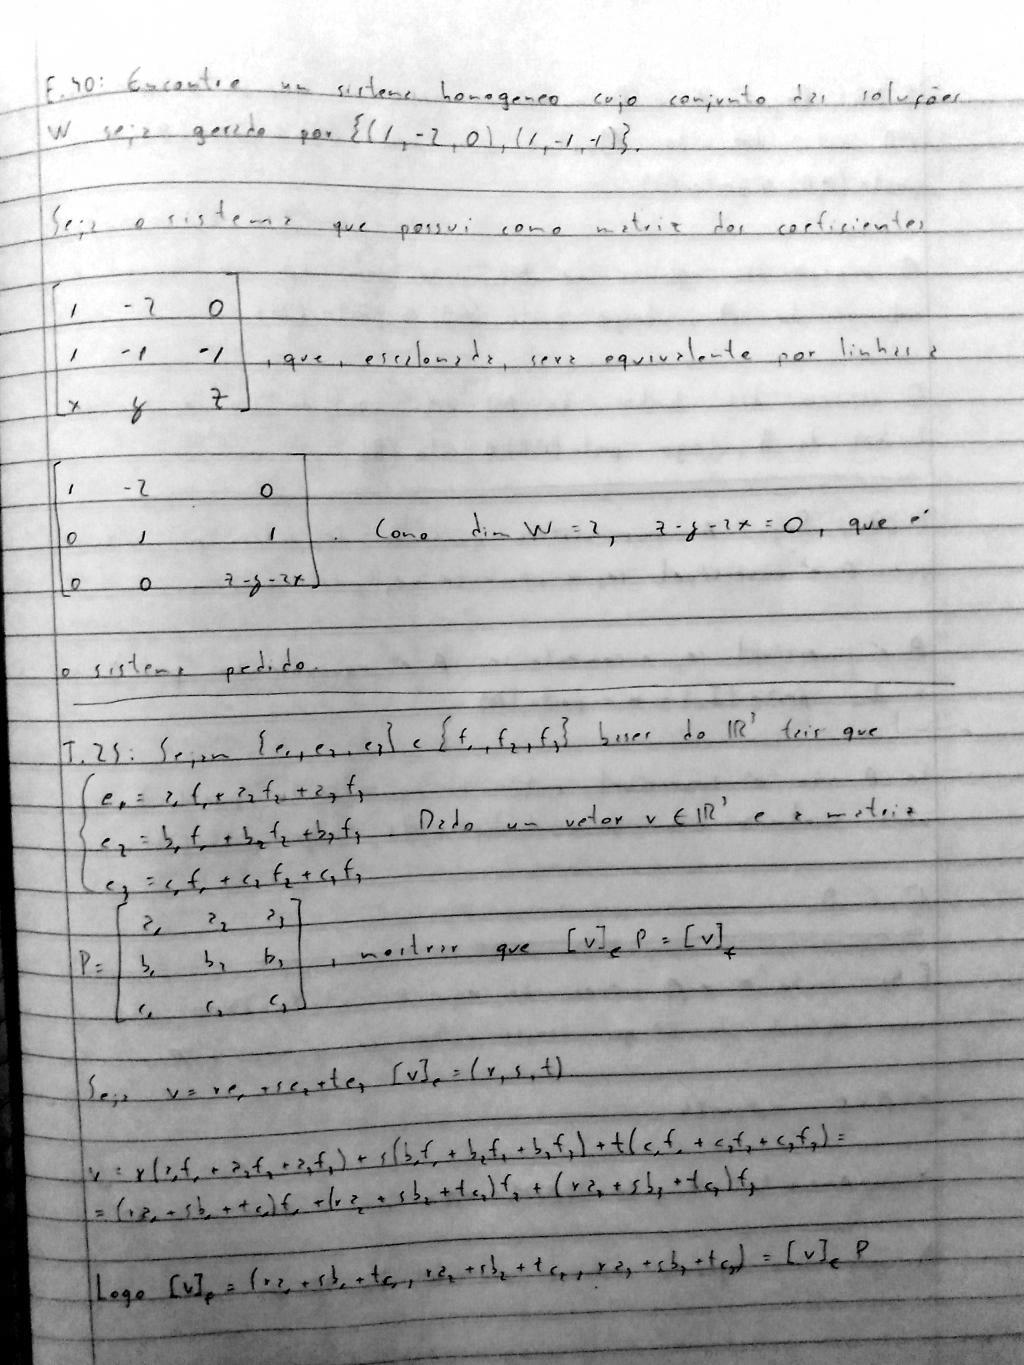 E.40: Encontre um sistema homogeneo cujo conjunto das soluções
W seja gerado por {(1,-2,0),(1,-1,1)}.
Seja o sistema que possui como matriz dos coeficientes
[1 -2 0]
[1 -1 -1], que, escalonada, sera equivalente por linhas a
[x y z]
[1 -2 0]
[0 1 1]. Como dim W = 2, z-y-2x = 0, que é
[0 0 z-y-2x]
o sistema pedido.
T.25: Sejam {e₁, e₂, e₃} e {f₁, f₂, f₃} bases do ℝ³ tais que
e₁ = a₁f₁ + a₂f₂ + a₃f₃
e₂ = b₁f₁ + b₂f₂ + b₃f₃. Dado um vetor v ∈ ℝ³ e a matriz
e₃ = c₁f₁ + c₂f₂ + c₃f₃
[a₁ a₂ a₃]
P = [b₁ b₂ b₃], mostrar que [v]ₑ P = [v]f
[c₁ c₂ c₃]
Seja v = re₁ + se₂ + te₃ [v]ₑ = (r, s, t)
v = r(a₁f₁ + a₂f₂ + a₃f₃) + s(b₁f₁ + b₂f₂ + b₃f₃) + t(c₁f₁ + c₂f₂ + c₃f₃) =
= (ra₁ + sb₁ + tc₁)f₁ + (ra₂ + sb₂ + tc₂)f₂ + (ra₃ + sb₃ + tc₃)f₃
Logo [v]f = (ra₁ + sb₁ + tc₁, ra₂ + sb₂ + tc₂, ra₃ + sb₃ + tc₃) = [v]ₑ P